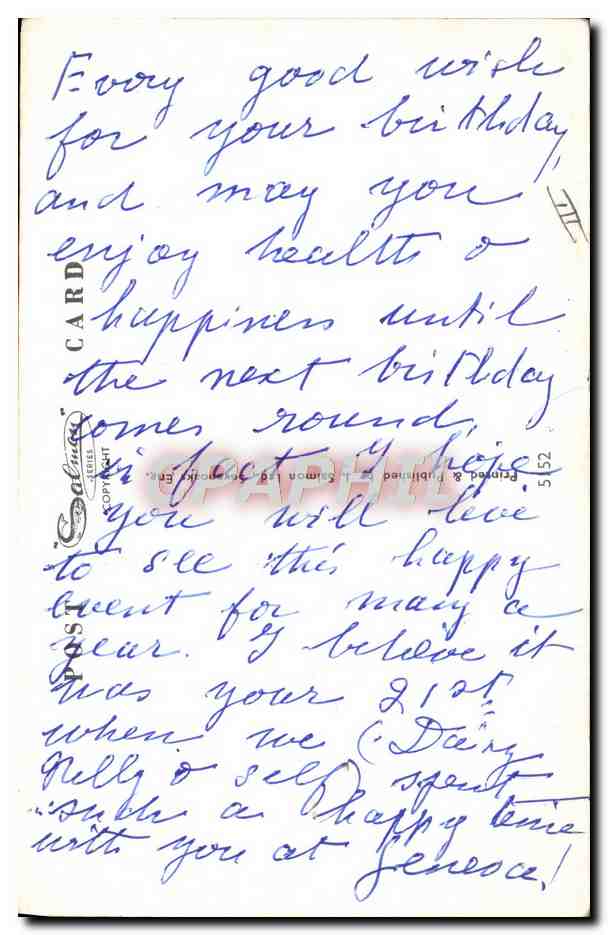 Every good wish
for your birthday,
and may you
III
enjoy health &
happiness until
the next birthday
comes round,
in fact I hope
you will live
to see this happy
event for many a
year. I believe it
was your 21st
when we (Daisy
Nelly & self) spent
such a happy time
with you at Geneva!
POST CARD
"Salmon"
SERIES
COPYRIGHT
Printed & Published by J. Salmon Ltd., Sevenoaks, Eng.
5152
CPAPHIL